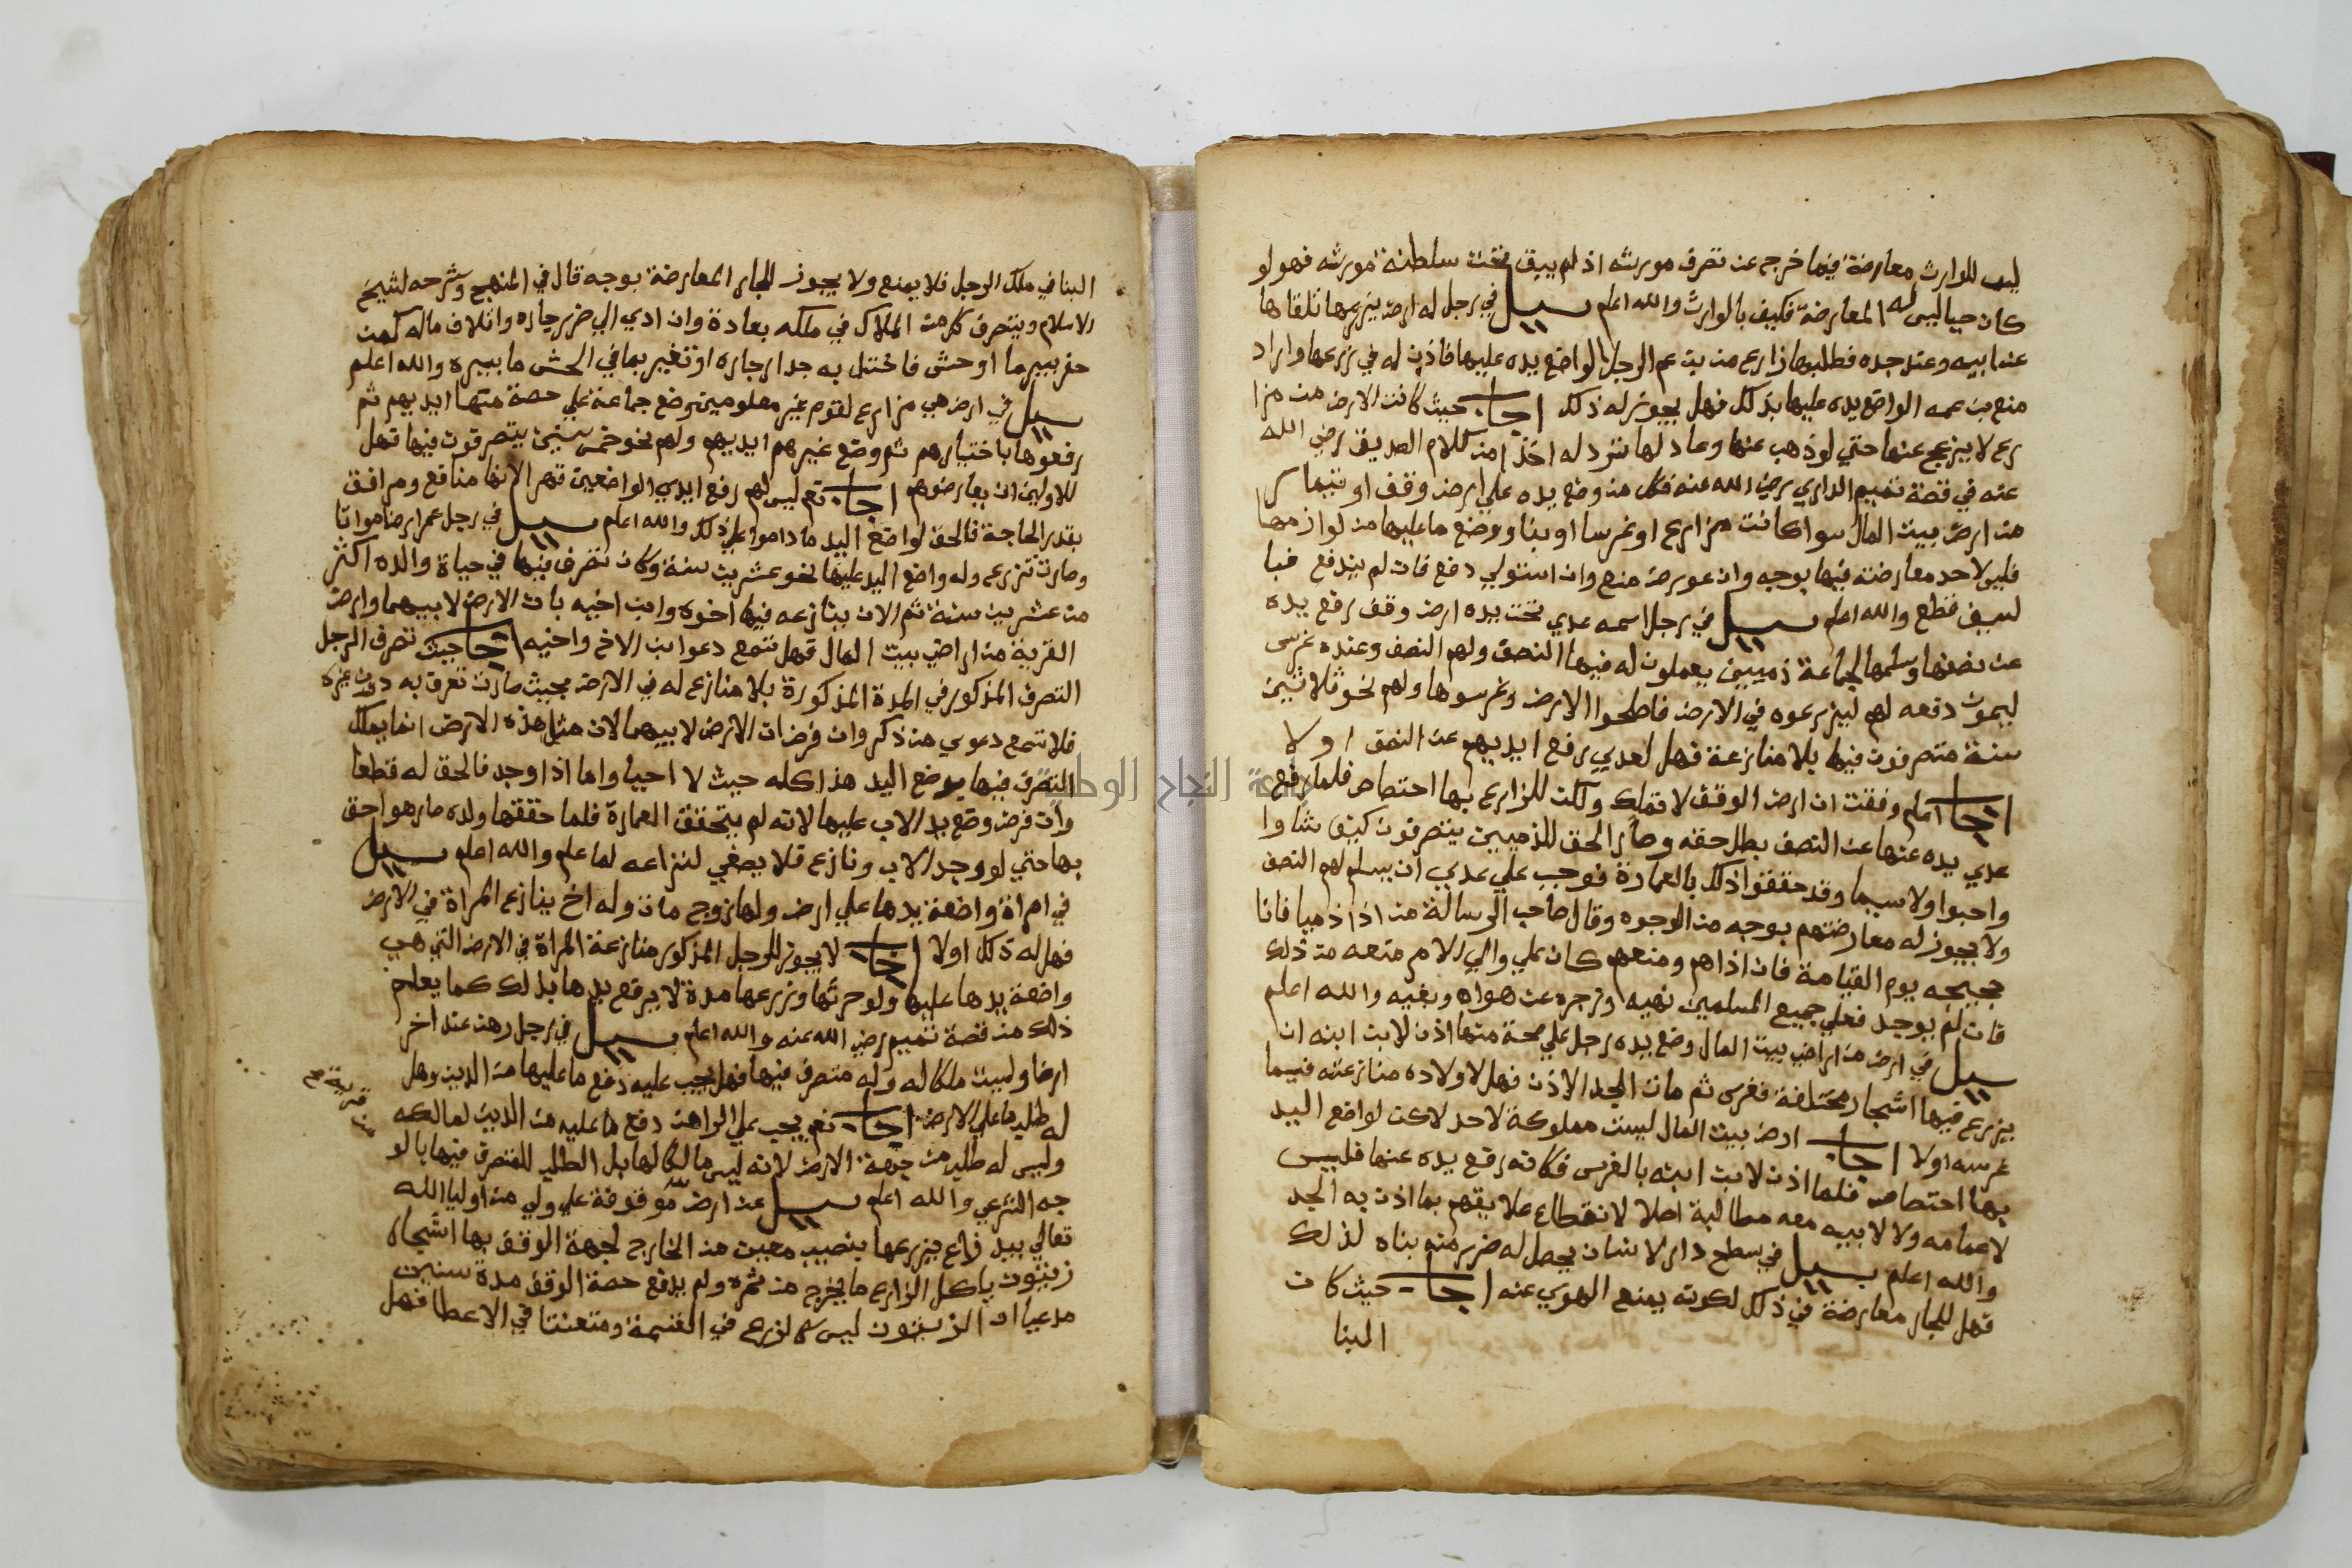 ليس للوارث معارضة فيما خرج عن تصرف مورثه اذ لم يبق تحت سلطنة مورثه فهو لو
كان حيا ليس له المعارضة فكيف بالوارث والله اعلم سيل في رجل له ارض يزرعها تلقاها
عن ابيه وعن جده فطلبها زارع من بن عم الرجل الواضع يده عليها فاذن له في زرعها واراد
منع بن عمه الواضع يده عليها بذلك فهل يجوز له ذلك اجاب حيث كانت الارض من مزا
رع لا يزعج عنها حتي لو ذهب عنها وعاد لها ترد له اخذا من كلام الصديق رضي الله
عنه في قصة تميم الداري رضي الله عنه فكل من وضع يده علي ارض وقف او تيمار
من ارض بيت المال سوا كانت مزارع او غرسا او بنا ووضع ما عليها من لوازمها
فليس لاحد معارضته فيها بوجه وان عورض منع وان استولي دفع فان لم يندفع فبا
لسيف قطع والله اعلم سيل في رجل اسمه عدي تحت يده ارض وقف رفع يده
عن نصفها وسلمها لجماعة ذميين يعملون له فيها النصف ولهم النصف وعنده غرس
ليموت دفعه لهم ليزرعوه في الارض فاصلحوا الارض وغرسوها ولهم نحو ثلاثين
سنة متصرفون فيها بلا منازعة فهل لعدي رفع ايديهم عن النصف او لا
اجاب اعلم وفقت ان ارض الوقف لا تملك ولكن للزارع بها اختصاص فلما رفع
عدي يده عنها عن النصف بطل حقه وصار الحق للذميين يتصرفون كيف شاوا
واحبوا ولا سيما وقد حققوا ذلك بالعمارة فوجب علي عدي ان يسلم لهم النصف
ولا يجوز له معارضتهم بوجه من الوجوه وقال صاحب الرسالة من اذا ذميا فانا
حجيجه يوم القيامة فان اذاهم ومنعهم كان علي والي الامر منعه من ذلك
فان لم يوجد فعلي جميع المسلمين نهيه وزجره عن هواه وبغيه والله اعلم
سيل في ارض من اراضي بيت المال وضع يده رجل علي صحة منها اذن لابن ابنه ان
يزرع فيها اشجار مختلفة فغرس ثم مات الجد الاذن فهل لاولاده منازعته فيما
غرسه اولا اجاب ارض بيت المال ليست مملوكة لاحد لاكن لواضع اليد
بها اختصاص فلما اذن لابن ابنه بالغرس فكانه رفع يده عنها فليس
لاعمامه ولا لابيه معه مطالبة اصلا لانقطاع علايقهم بما اذن به الجد
والله اعلم سيل في سطح دار لانسان يحصل له ضرر منه بناه لذلك
فهل للجار معارضة في ذلك لكونه يمنع الهوي عنه اجاب حيث كان
البنا
البنا في ملك الرجل فلا يمنع ولا يجوز للجار المعارضة بوجه قال في المنهج وشرحه لشيخ
الاسلام ويتصرف كل من الملاك في ملكه بعادة وان ادي الي ضرر جاره واتلاف ماله كمن
حفر بيرما او حش فاختل به جدار جاره او تغير بما في الحش ما بيره والله اعلم
سيل في ارض هي مزارع لقوم غير معلومين وضع جماعة علي حصة منها ايديهم ثم
رفعوها باختيارهم ثم وضع غيرهم ايديهم ولهم نحو خمس سنين يتصرفون فيها فهل
للاولين ان يعارضوهم اجاب نعم ليس لهم رفع ايدي الواضعين قهرا لانها منافع ومرافق
بقدر الحاجة فالحق لواضع اليد ما داموا علي ذلك والله اعلم سيل في رجل عمر ارضا مواتا
وصارت تزرع وله واضع اليد عليها نحو عشرين سنة وكان تصرف فيها في حياة والده اكثر
من عشرين سنة ثم الان ينازعه فيها اخوه وابن اخيه بان الارض لابيهما وارض
القرية من اراضي بيت المال فهل تسمع دعوا ابن الاخ واخيه اجاب حيث تصرف الرجل
التصرف المذكور في المدة المذكورة بلا منازع له في الارض بحيث صارت تعرف به دون غيره
فلا تسمع دعوي من ذكر وان فرض ان الارض لابيهما لان مثل هذه الارض انما يملك
التصرف فيها بوضع اليد هذا كله حيث لا احيا واما اذا وجد فالحق له قطعا
وان فرض وضع يد الاب عليها لانه لم يتحقق العمارة فلما حققها ولده صار هو احق
بها حتي لو وجد الاب ونازع فلا يصغي لنزاعه لما علم والله اعلم سيل
في امراة واضعة يدها علي ارض ولها زوج مات وله اخ ينازع المراة في الارض
فهل له ذلك اولا اجاب لا يجوز للرجل المذكور منازعة المراة في الارض التي هي
واضعة يدها عليها ولو حرثها وزرعها مدة لا يرفع يدها بذلك كما يعلم
ذلك من قصة تميم رضي الله عنه والله اعلم سيل في رجل رهن عند اخر
ارضا وليست ملكا له وله متصرف فيها فهل يجب عليه دفع ما عليها من الدين وهل
من قرية
له طلب ما علي الارض اجاب نعم يجب علي الراهن دفع ما عليه من الدين لمالكه
وليس له طلب من جهة الارض لانه ليس مالكا لها بل الطلب للمتصرف فيها بالو
جه الشرعي والله اعلم سيل عن ارض موقوفة علي ولي من اوليا الله
تعالي بيد زارع يزرعها بنصيب معين من الخارج لجهة الوقف بها اشجار
زيتون ياكل الزارع ما يخرج من ثمره ولم يدفع حصة الوقف مدة سنين
مدعيا ان الزيتون ليس كالزرع في القسمة ومتعنتا في الاعطا فهل